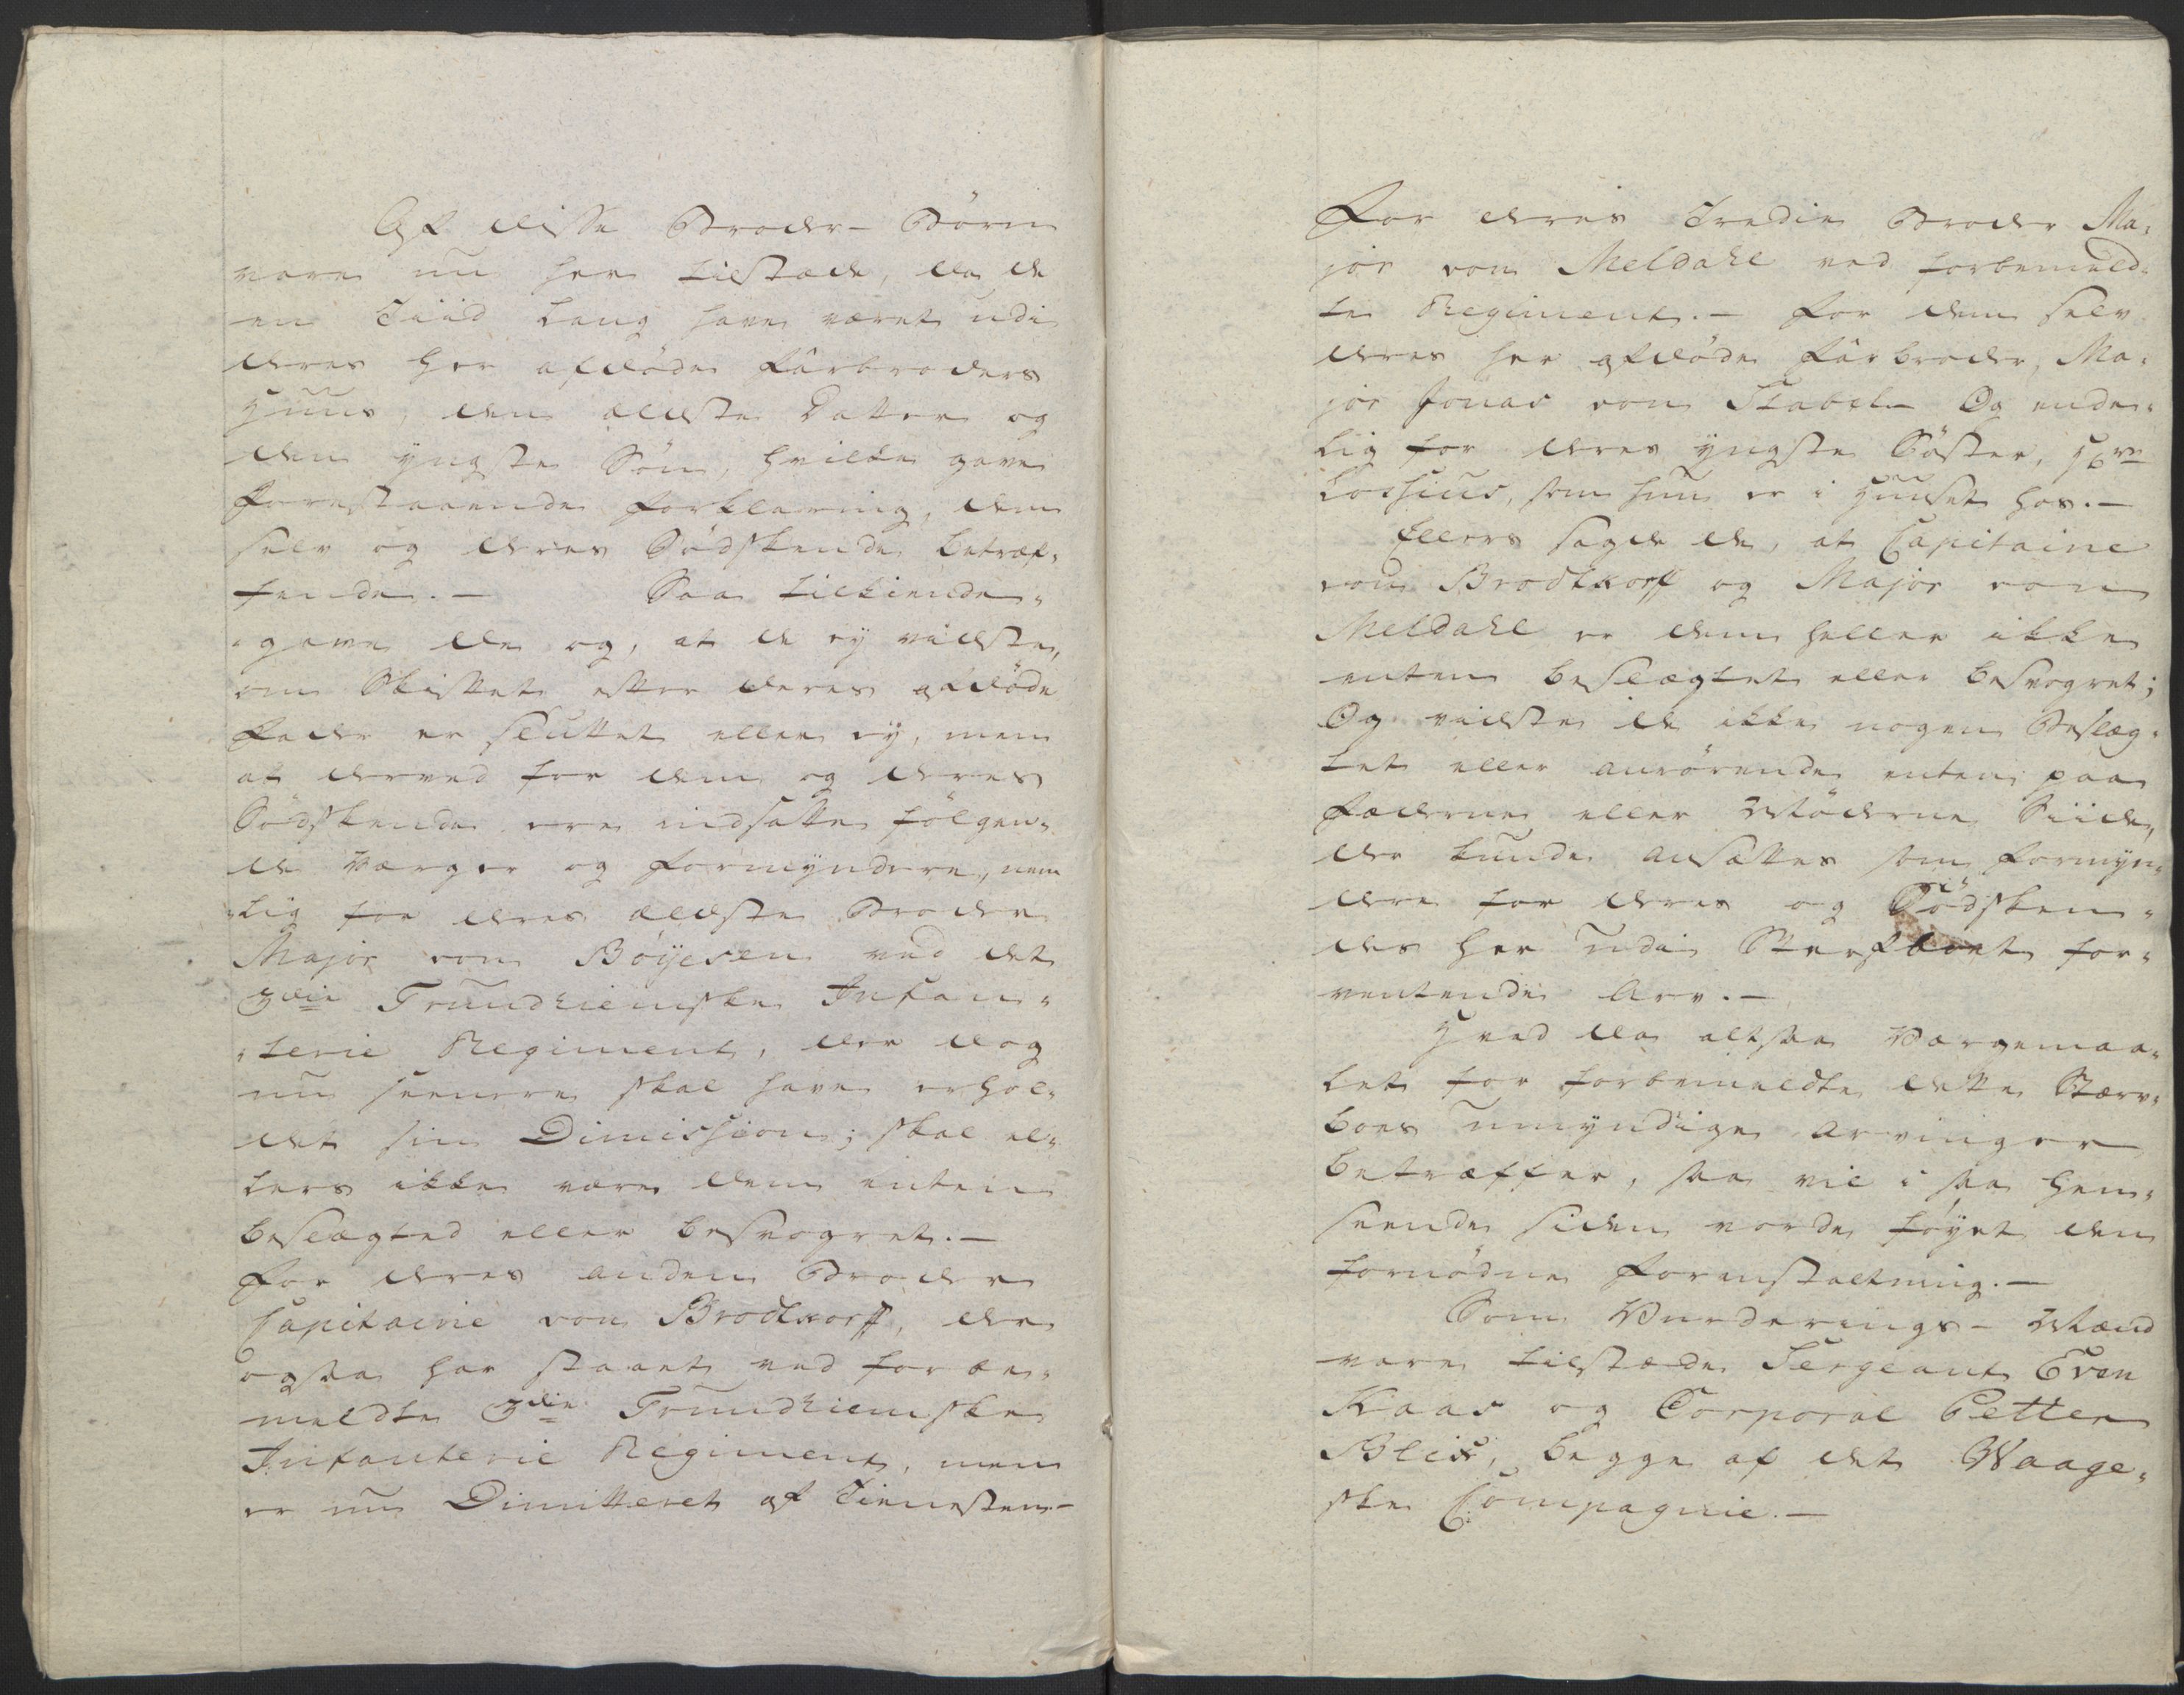 Af disse Broder-Børn
vare nu her tilstæde, da de
en Tiid lang have været udi
deres her afdøde Farbroders
Huus, den ældste Datter og
den yngste Søn, hvilke gave
forestaaende forklaring, dem
selv og deres Sødskende betræf-
fende. — Saa tilkiende-
-gave de og, at de ey vidste,
om Skiftet efter deres afdøde
Fader er sluttet eller ey, men
at derved for dem og deres
Sødskende ere indsatte følgen-
de Værger og Formyndere, nem-
-lig for deres ældste Broder
Major von Böÿesen ved det
3die Trundhiemske Infan-
-terie Regiment, der dog
nu seenere skal have erhol-
det sin Dimission; skal el-
lers ikke være dem enten
beslægted eller besvogret. —
For deres anden Broder
Capitaine von Brodtkorff, der
ogsaa har staaet ved forbe-
meldte 3die Trundhiemske
Infanterie Regiment, men
er nu Dimitteret af Tienesten —
For deres Tredie Broder Ma-
jor von Meldahl ved forbemeld-
te Regiment. — For dem selv
deres her afdøde Farbroder, Ma-
jor Jonas von Stabel — Og ende-
lig for deres yngste Søster, Hr
Lossius, som hun er i Huuset hos. —
Ellers sagde de, at Capitaine
von Brodtkorff og Major von
Meldahl er dem heller ikke
enten beslægtet eller besvogret;
Og vidste de ikke nogen Beslæg-
tet eller anrörende enten paa
Fæderne eller Möderne Siide,
der kunde ansættes som Formyn-
dere for deres og Södsken-
des her udi Sterfboet for-
ventende Arv. —
Hvad da altsaa Værgemaa-
let for forbemeldte dette Stærv-
boes umyndige Arvinger
betræffer, saa vil i saa hen-
seende siden vorde föyet den
fornödne Foranstaltning. —
Som Vurderings-Mænd
vare tilstæde Sergeant Even
Kaas og Corporal Petter
Blix, begge af det Waage-
ske Compagnie. —